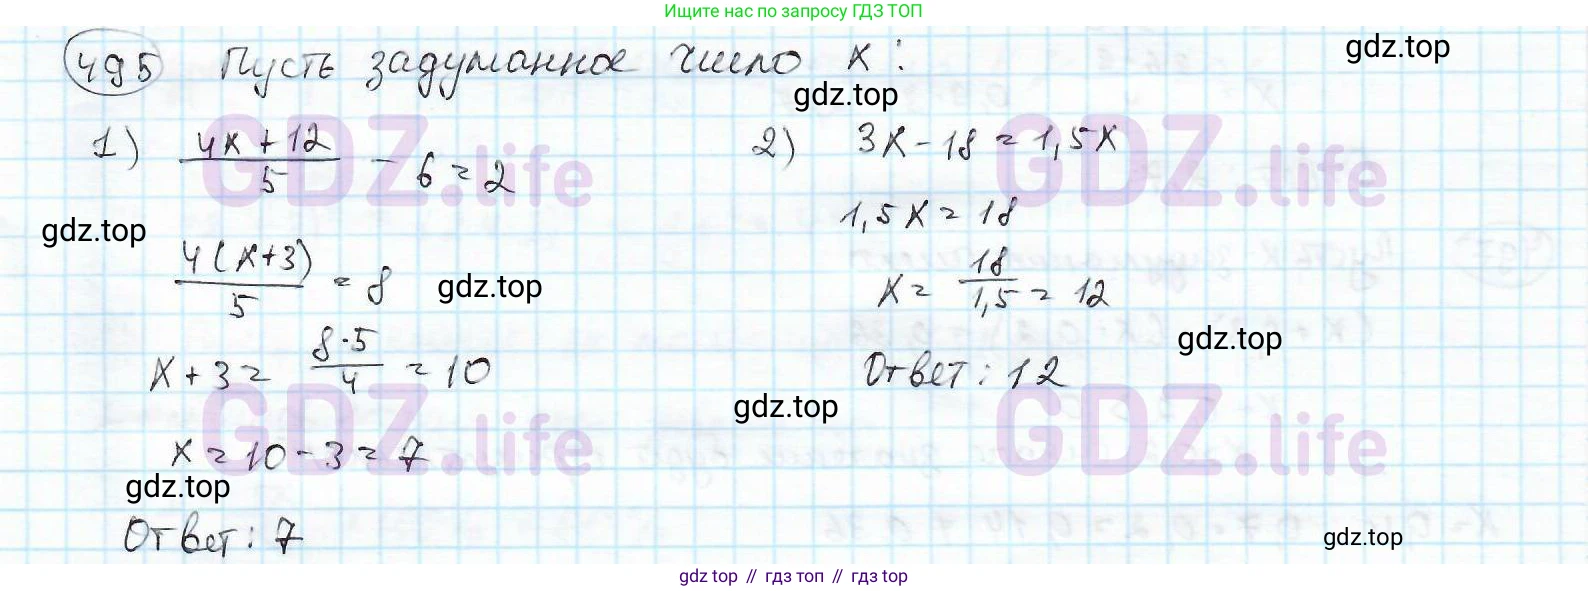 Ищите нас по запросу ГДЗ ТОП
495 Пусть задуманное число x:
gdz.top
gdz.top
1) (4x + 12)/5 - 6 = 2
2) 3x - 18 = 1,5x
GDZ.life
GDZ.life
gdz.top
1,5x = 18
4(x+3)/5 = 8
gdz.top
x = 18/1,5 = 12
gdz.top
x + 3 = 8·5/4 = 10
Ответ: 12
gdz.top
GDZ.life
GDZ.life
x = 10 - 3 = 7
gdz.top
Ответ: 7
gdz.top
gdz top // гдз топ // gdz top